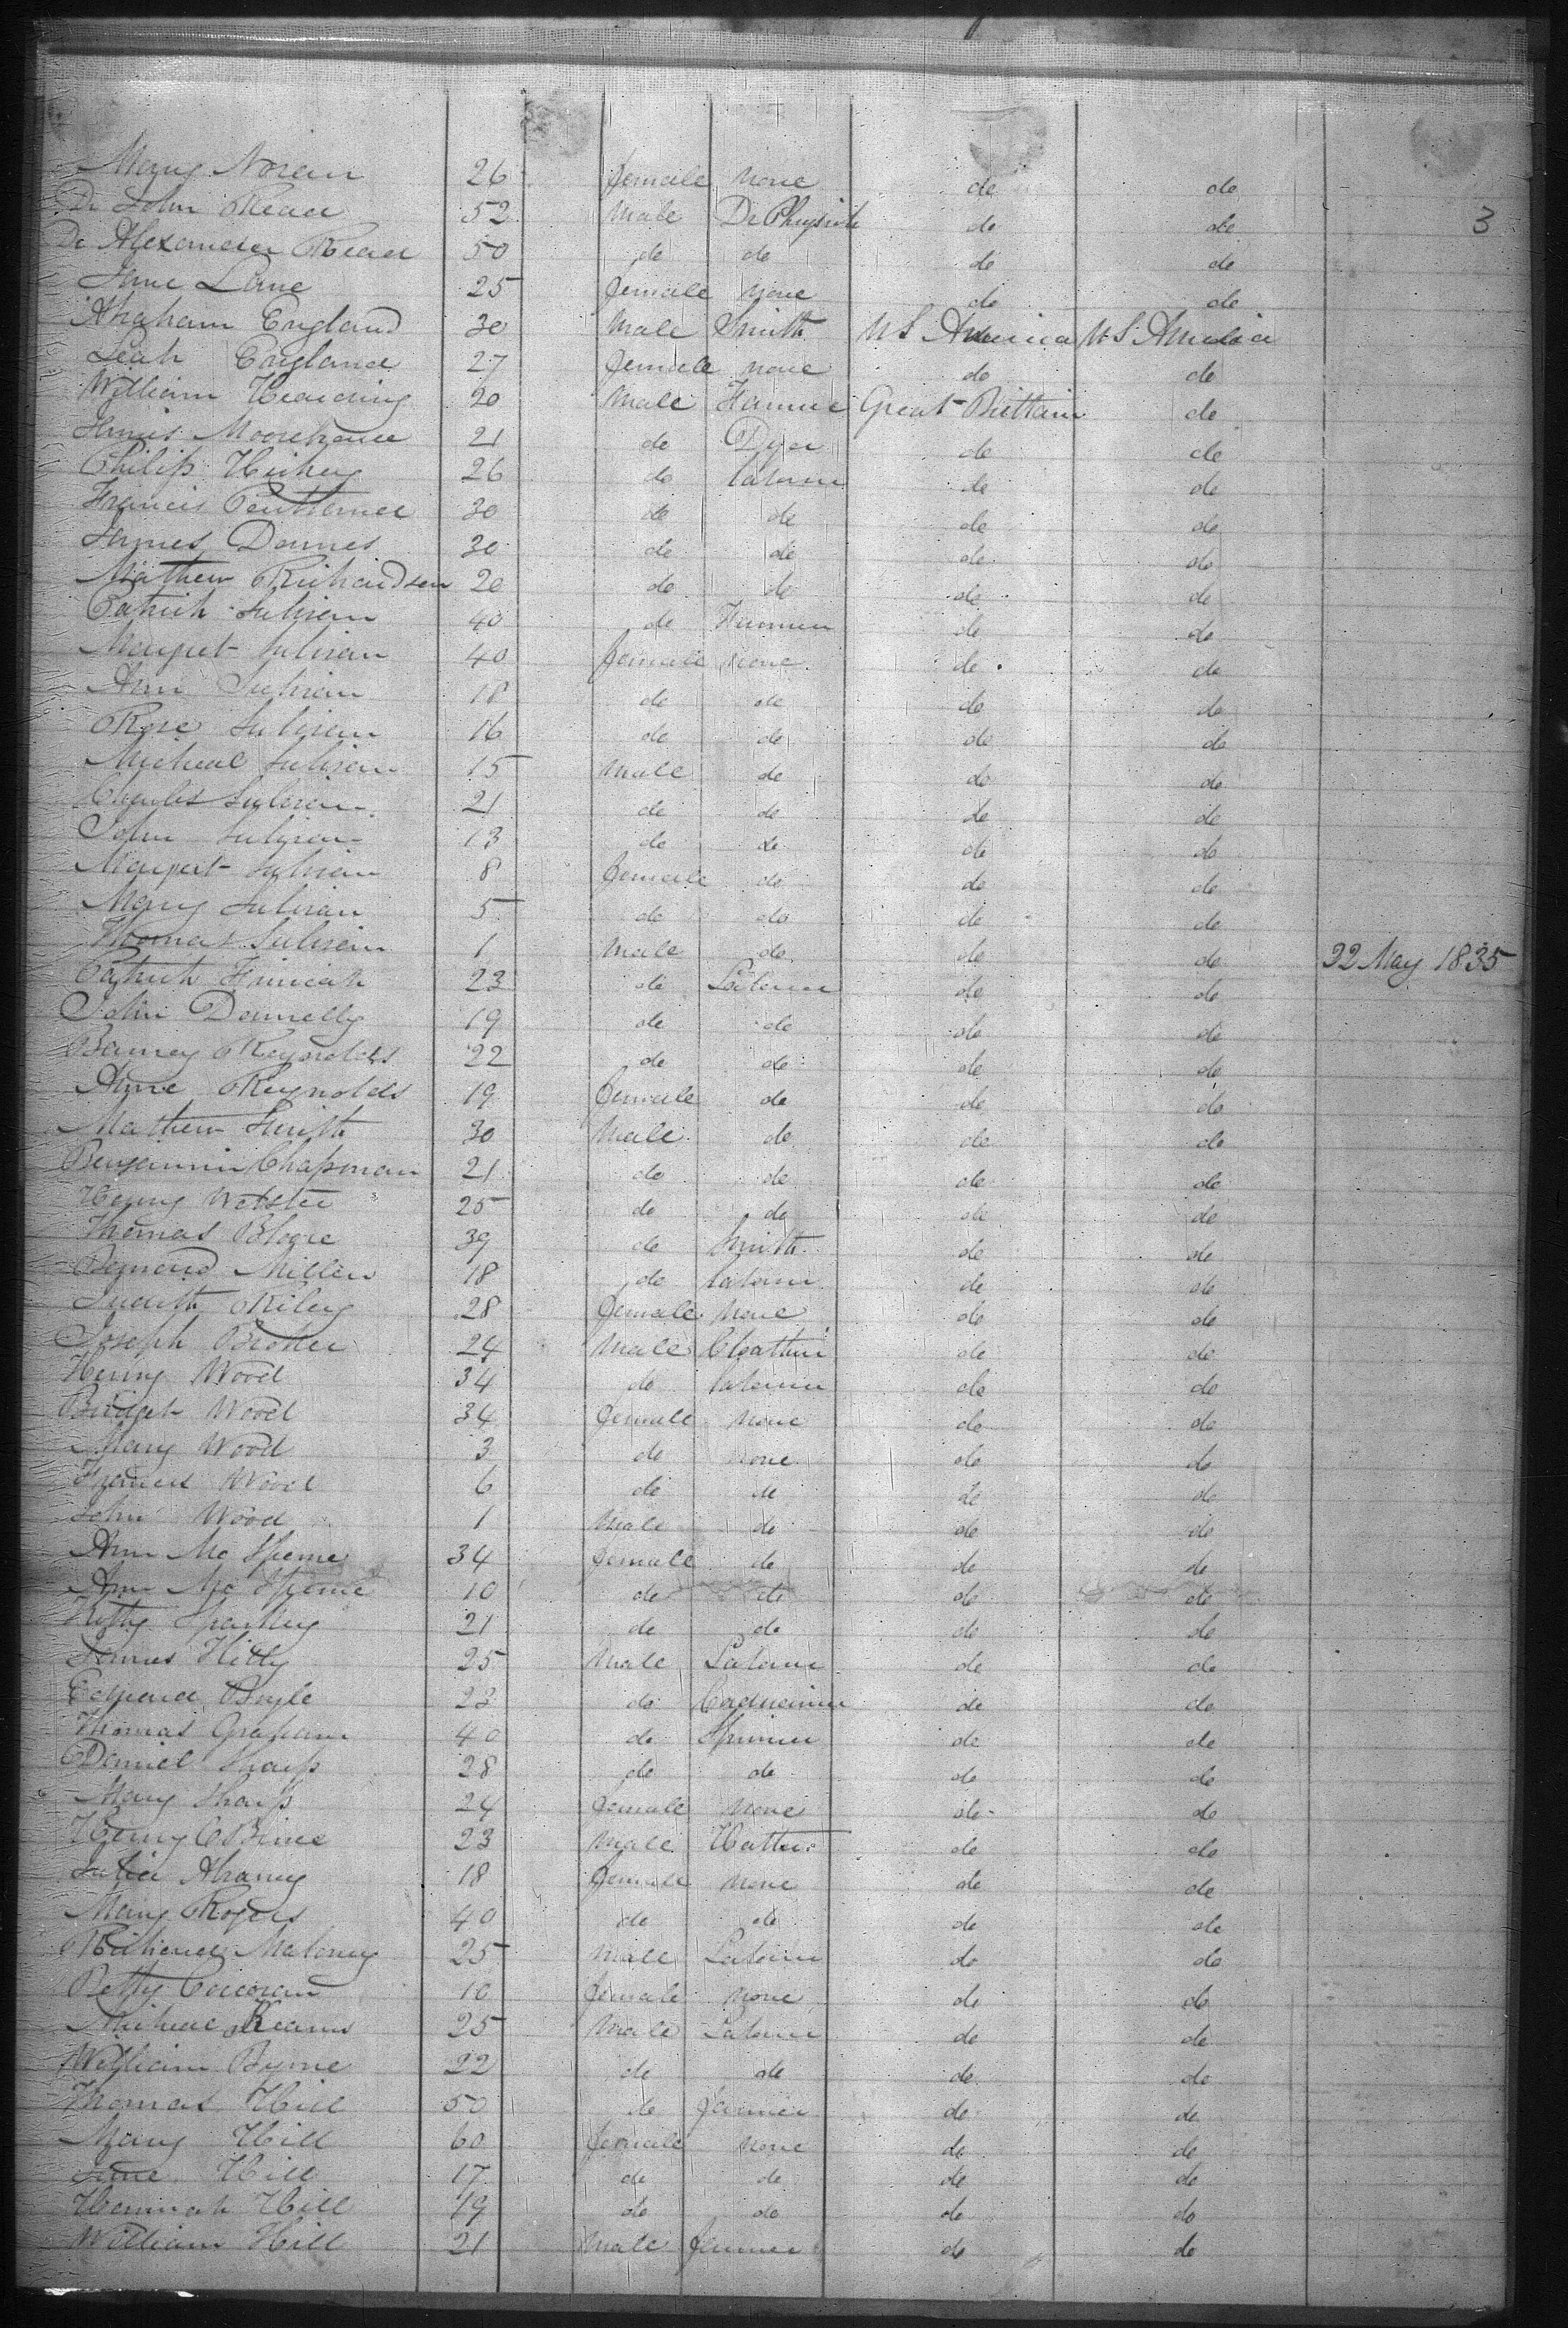 Mary Noran 26 female None do do
Dr John Reace 52 Male Dr Physick do do 3
Dr Alexander Reace 50 do do do do
Jane Lane 25 female None do do
Abraham England 30 Male Smith U S America U S America
Leah England 27 female None do do
William Hearding 20 Male Farmer Great Brittain do
James Moorehouse 21 do Dyer do do
Philip 26 do labourer do do
Francis 30 do do do do
James Dennes 30 do do do do
Mathew Richardson 20 do do do do
Patrick Sulivan 40 do Farmer do do
Margret Sulivan 40 female None do do
Ann Sulivan 18 do do do do
Rose Sulivan 16 do do do do
Micheal Sulivan 15 Male do do do
Charles Sulivan 21 do do do do
John Sulivan 13 do do do do
Margret Sulivan 8 female do do do
Mary Sulivan 5 do do do do
Thomas Sulivan 1 Male do do do 22 May 1835
Patrick 23 do Labourer do do
John Donnelly 19 do do do do
Barney Reynolds 22 do do do do
Anne Reynolds 19 female do do do
Mathew Smith 30 Male do do do
Benjamin Chapman 21 do do do do
Henry Webster 25 do do do do
Thomas Blogre 39 do Smith do do
Bernard Millen 18 do labourer do do
Judith Riley 28 female None do do
Joseph 24 Male Cloathier do do
Henry Wood 34 do labourer do do
Bridget Wood 34 female None do do
Mary Wood 3 do None do do
Frances Wood 6 do do do do
John Wood 1 Male do do do
Ann Mc 34 female do do do
Ann Mc 10 do do do do
Kitty 21 do do do do
James 25 Male Labourer do do
Edward Boyle 23 do do do
Thomas Graham 40 do Spinner do do
Daniel Sharp 28 do do do do
Mary Sharp 24 female None do do
Henry 23 Male Hatter do do
Julia 18 female None do do
Mary Rogers 40 do do do do
Richard Maloney 25 Male Labourer do do
Betty Corcoran 10 female None do do
Micheal Kearns 25 Male Labourer do do
William Byrne 22 do do do do
Thomas Hill 50 do farmer do do
Mary Hill 60 female None do do
Jane Hill 17 do do do do
Hannah Hill 19 do do do do
William Hill 21 Male farmer do do